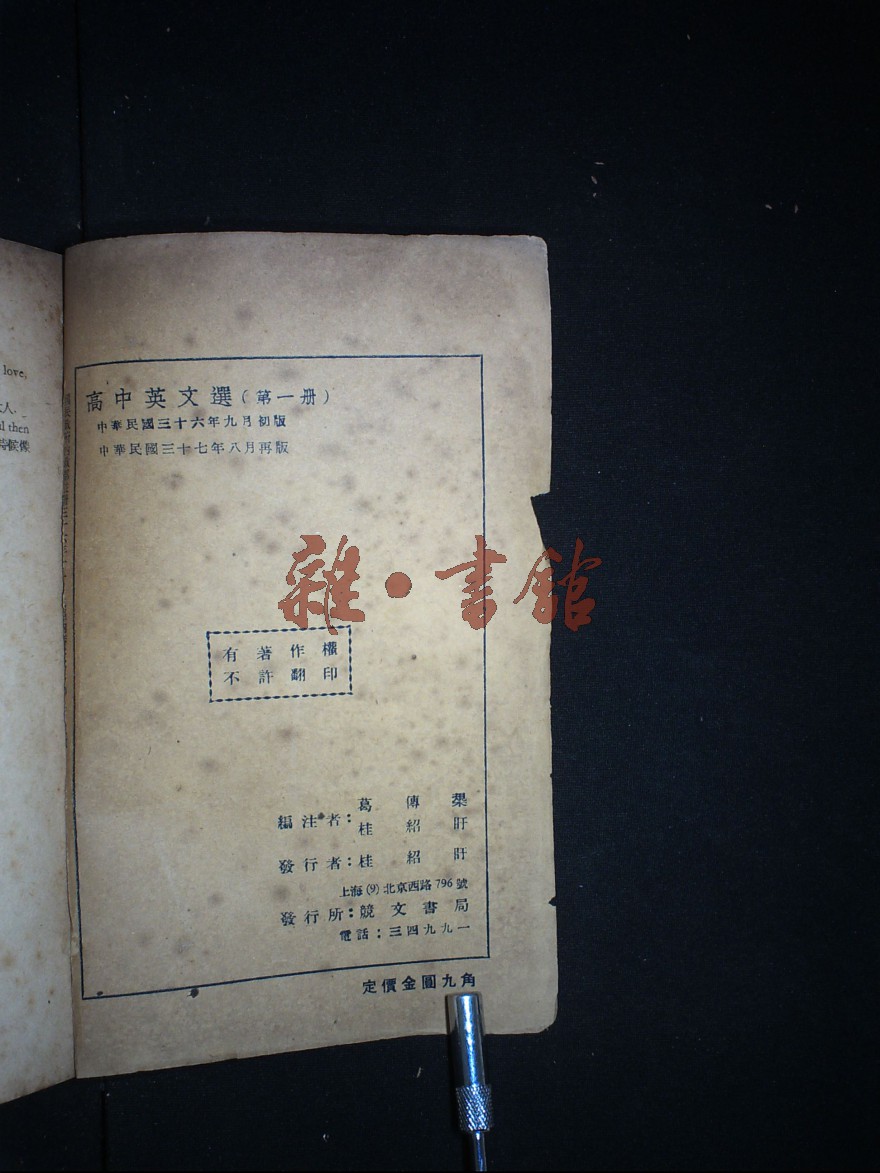 love,
人.
l then
時候像
高中英文選(第一册)
中華民國三十六年九月初版
中華民國三十七年八月再版
雜·書館
有著作權
不許翻印
編注者:葛傳槼
桂紹盱
發行者:桂紹盱
上海(9)北京西路796號
發行所:競文書局
電話:三四九九一
定價金圓九角